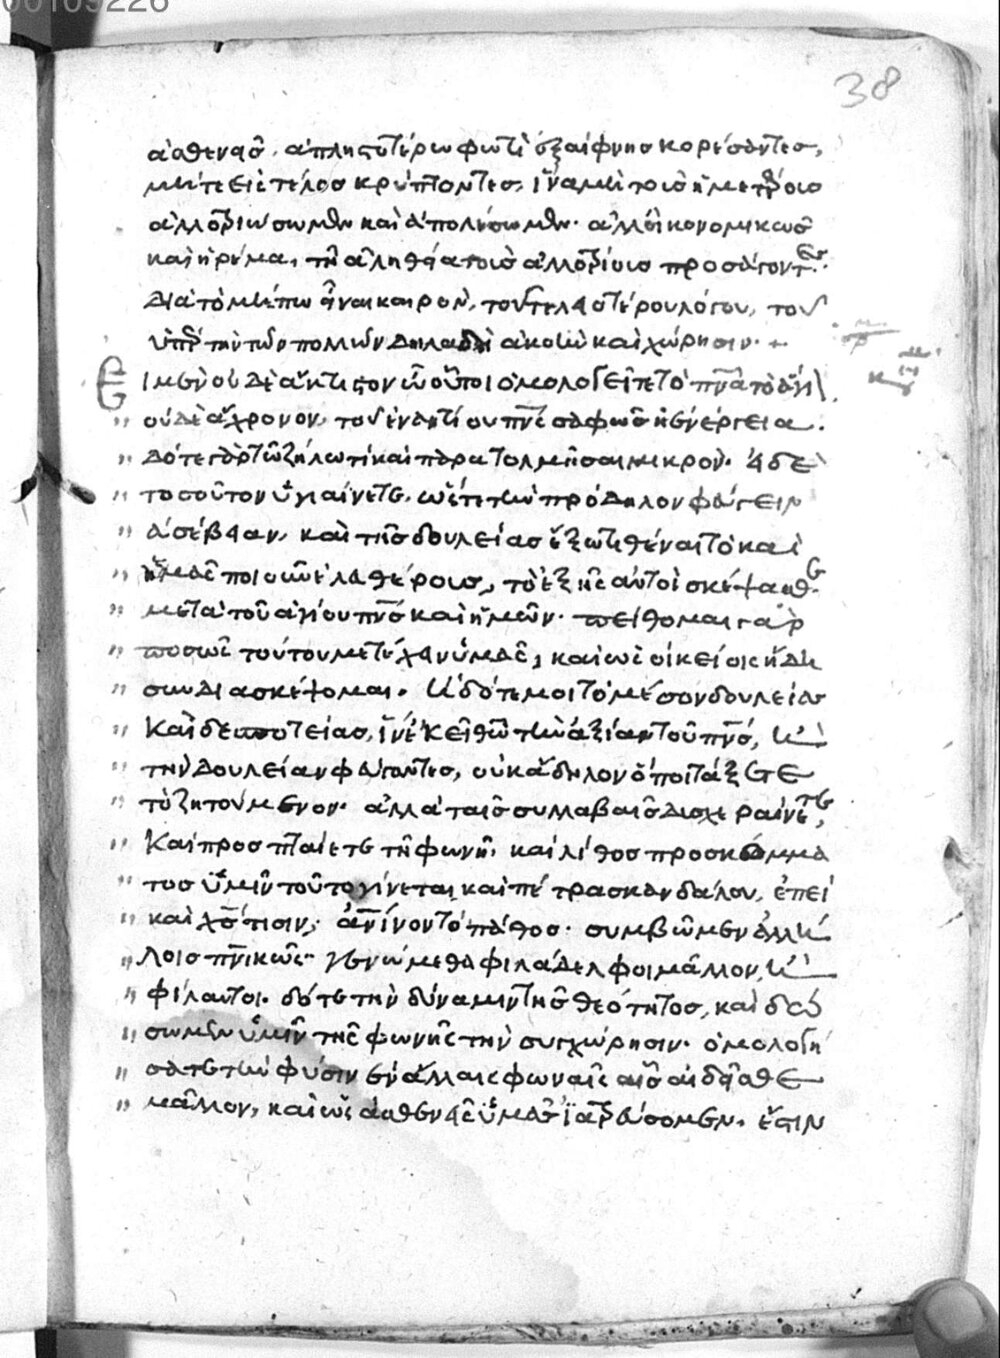 00109226
38
ἀσθενεῖς. ἀπληστοτέρω φωτὶ ἐξαίφνης κορέσαντες,
μήτε εἰς τέλος κρύπτοντες. ἵνα μὴ τοὺς ἡμετέρους
ἀλλοτριώσωμεν καὶ ἀπολέσωμεν. ἀλλ' οἰκονομικῶς
καὶ ἠρέμα, τῇ ἀληθείᾳ τοὺς ἀλλοτρίους προσάγοντες.
Διὰ τὸ μήπω εἶναι καιρὸν, τοῦ τελεωτέρου λόγου, τοῦ
ὑπὲρ τὴν τῶν πολλῶν δηλαδὴ ἀκοὴν καὶ χώρησιν.
Εἰ μὲν οὐδὲ ἄκτιστον ὦ οὗτοι ὁμολογεῖτε τὸ πνᾶ τὸ ἅγι
οὐδὲ ἄχρονον, τοῦ ἐναντίου πνς σαφῶς ἡ ἐνέργεια.
Δότε γὰρ τῷ ζήλῳ τί καὶ παρατολμῆσαι μικρόν. εἰ δὲ
τοσοῦτον ὑγιαίνετε, ὥστε τὴν πρόδηλον φεύγειν
ἀσέβειαν, καὶ τῆς δουλείας ἔξω τιθέναι τὸ καὶ
ἡμᾶς ποιοῦν ἐλευθέρους, τὸ ἑξῆς αὐτοὶ σκέψασθε
μετὰ τοῦ ἁγίου πνς καὶ ἡμῶν. πείθομαι γὰρ
ποσῶς τούτου μετέχειν ὑμᾶς, καὶ ὡς οἰκείοις ἤδη
συνδιασκέψομαι. ἢ δότε μοι τὸ μέσον δουλείας
καὶ δεσποτείας, ἵν' ἐκεῖ θῶ τὴν ἀξίαν τοῦ πνς, ἢ
τὴν δουλείαν φεύγοντες, οὐκ ἄδηλον ὅποι τάξετε
τὸ ζητούμενον. ἀλλὰ ταῖς συλλαβαῖς δυσχεραίνετε,
καὶ προσπταίετε τῇ φωνῇ. καὶ λίθος προσκόμμα
τος ὑμῖν τοῦτο γίνεται, καὶ πέτρα σκανδάλου, ἐπεὶ
καὶ χς τισιν. ἀνινον τὸ πάθος. συμβῶμεν ἀλλή
λοις πνικῶς. γενώμεθα φιλάδελφοι μᾶλλον, ἢ
φίλαυτοι. δότε τὴν δύναμιν τῆς θεότητος, καὶ δώ
σωμεν ὑμῖν τῆς φωνῆς τὴν συγχώρησιν. ὁμολογή
σατε τὴν φύσιν ἐν ἄλλαις φωναῖς αἷς αἰδεῖσθε
μᾶλλον, καὶ ὡς ἀσθενεῖς ὑμᾶς ἰατρεύσομεν. ἔστιν